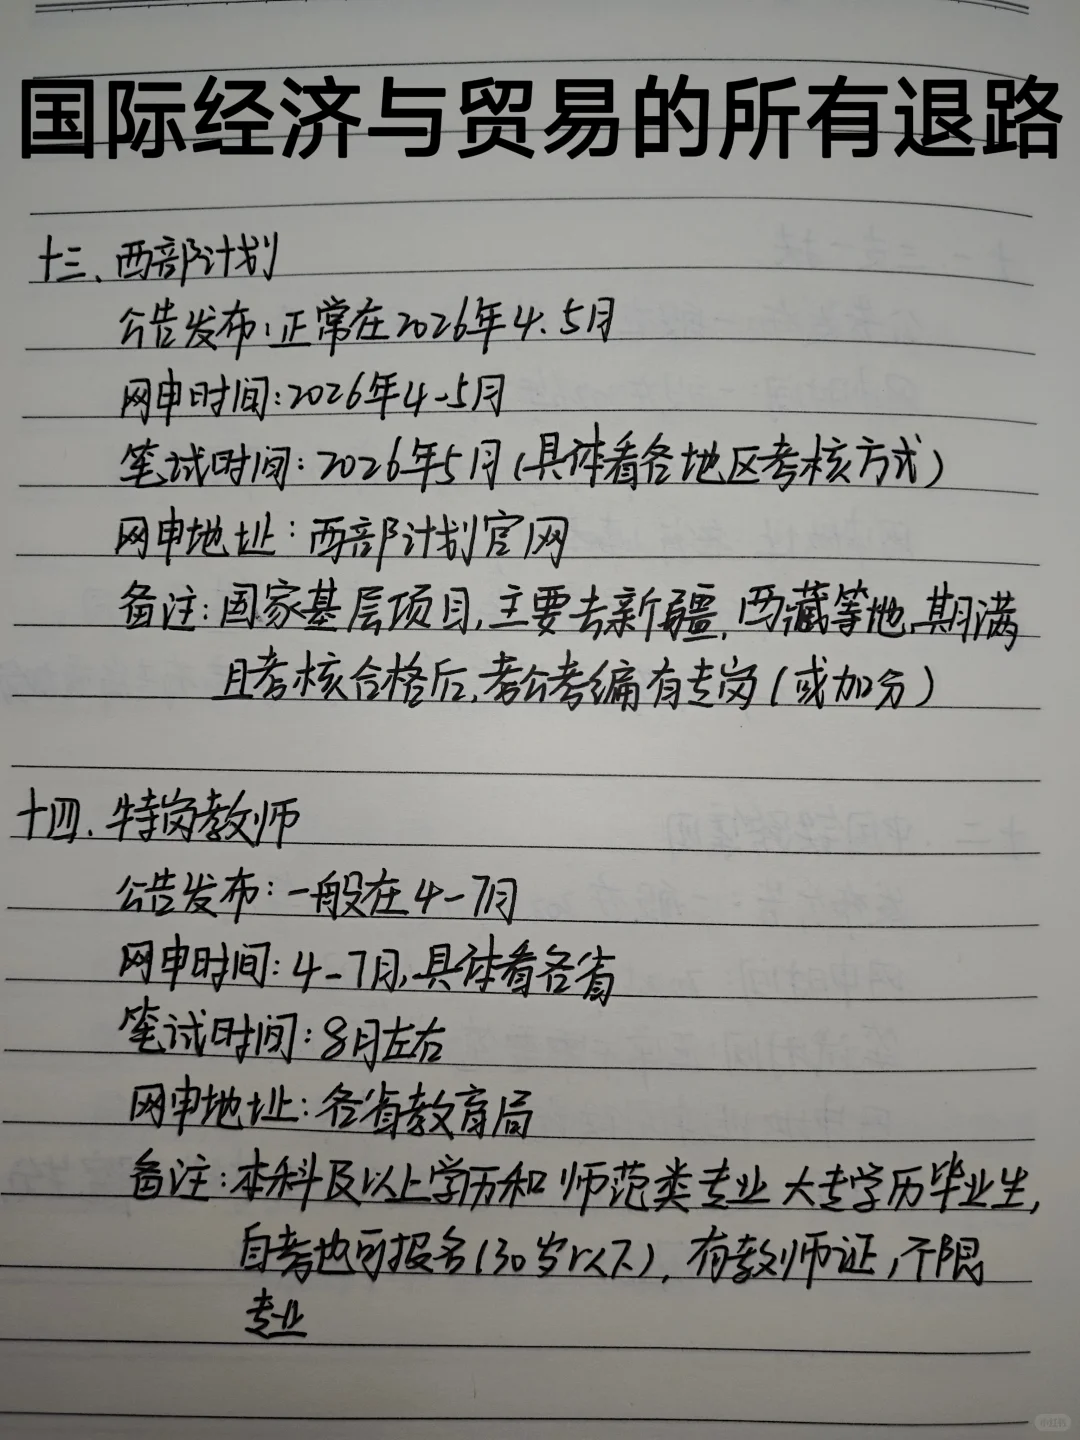 国际经济与贸易的所有退路
十三、西部计划
公告发布:正常在2026年4.5月
网申时间:2026年4-5月
笔试时间:2026年5月(具体看各地区考核方式)
网申地址:西部计划官网
备注:国家基层项目,主要去新疆,西藏等地,期满
且考核合格后,考公考编有专岗(或加分)
十四、特岗教师
公告发布:一般在4-7月
网申时间:4-7月,具体看各省
笔试时间:8月左右
网申地址:各省教育局
备注:本科及以上学历和师范类专业大专学历毕业生,
自考也可报名(30岁以下),有教师证,不限
专业
小红书